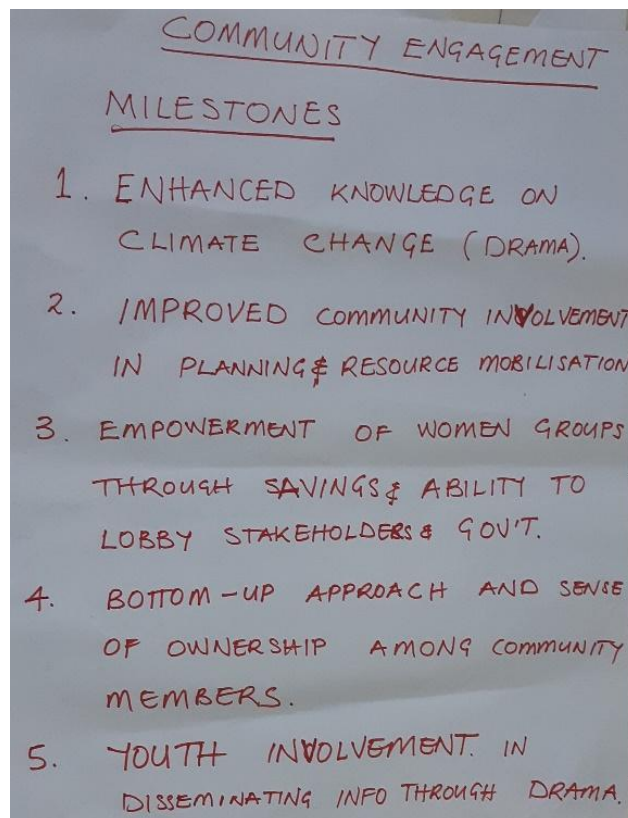 COMMUNITY ENGAGEMENT
MILESTONES
1. ENHANCED KNOWLEDGE ON
CLIMATE CHANGE (DRAMA).
2. IMPROVED COMMUNITY INVOLVEMENT
IN PLANNING & RESOURCE MOBILISATION
3. EMPOWERMENT OF WOMEN GROUPS
THROUGH SAVINGS & ABILITY TO
LOBBY STAKEHOLDERS & GOV'T.
4. BOTTOM-UP APPROACH AND SENSE
OF OWNERSHIP AMONG COMMUNITY
MEMBERS.
5. YOUTH INVOLVEMENT. IN
DISSEMINATING INFO THROUGH DRAMA.